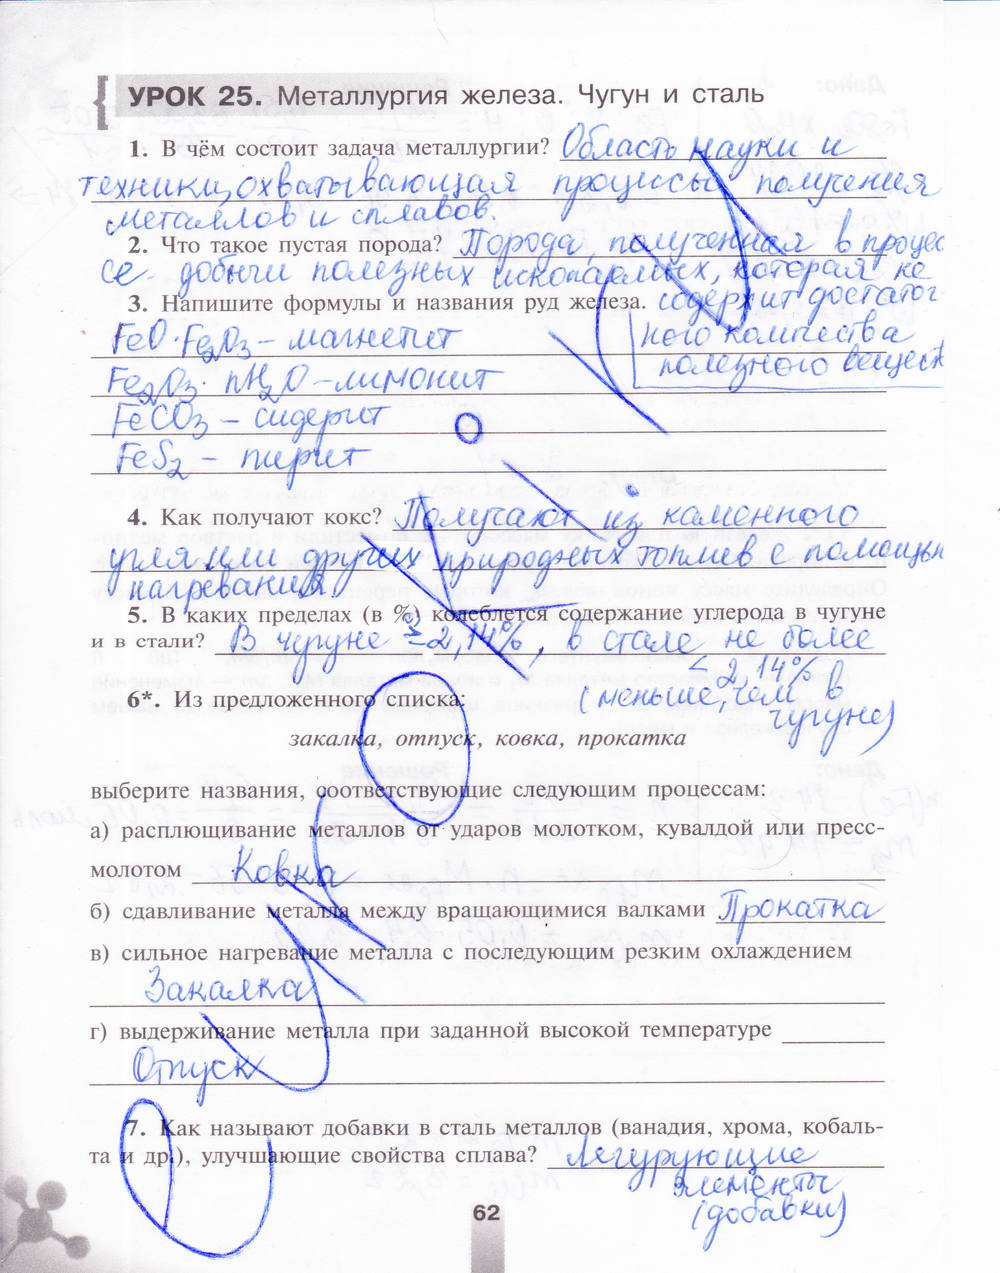 УРОК 25. Металлургия железа. Чугун и сталь
1. В чём состоит задача металлургии? Область науки и
техники, охватывающая процессы получения
металлов и сплавов.
2. Что такое пустая порода? Порода, полученная в процес
се добычи полезных ископаемых, которая не
3. Напишите формулы и названия руд железа. содержит достаточ
ного количества
полезного вещест
FeO·Fe2O3 – магнетит
Fe2O3 · nH2O – лимонит
FeCO3 – сидерит
FeS2 – пирит
4. Как получают кокс? Получают из каменного
угля или других природных топлив с помощью
нагревания.
5. В каких пределах (в %) колеблется содержание углерода в чугуне
и в стали? В чугуне ≥ 2,14%, в стале не более
< 2,14%
(меньше, чем в
чугуне)
6*. Из предложенного списка:
закалка, отпуск, ковка, прокатка
выберите названия, соответствующие следующим процессам:
а) расплющивание металлов от ударов молотком, кувалдой или пресс-
молотом Ковка
б) сдавливание металла между вращающимися валками Прокатка
в) сильное нагревание металла с последующим резким охлаждением
Закалка
г) выдерживание металла при заданной высокой температуре
Отпуск
7. Как называют добавки в сталь металлов (ванадия, хрома, кобаль-
та и др.), улучшающие свойства сплава? Легирующие
элементы
(добавки)
62